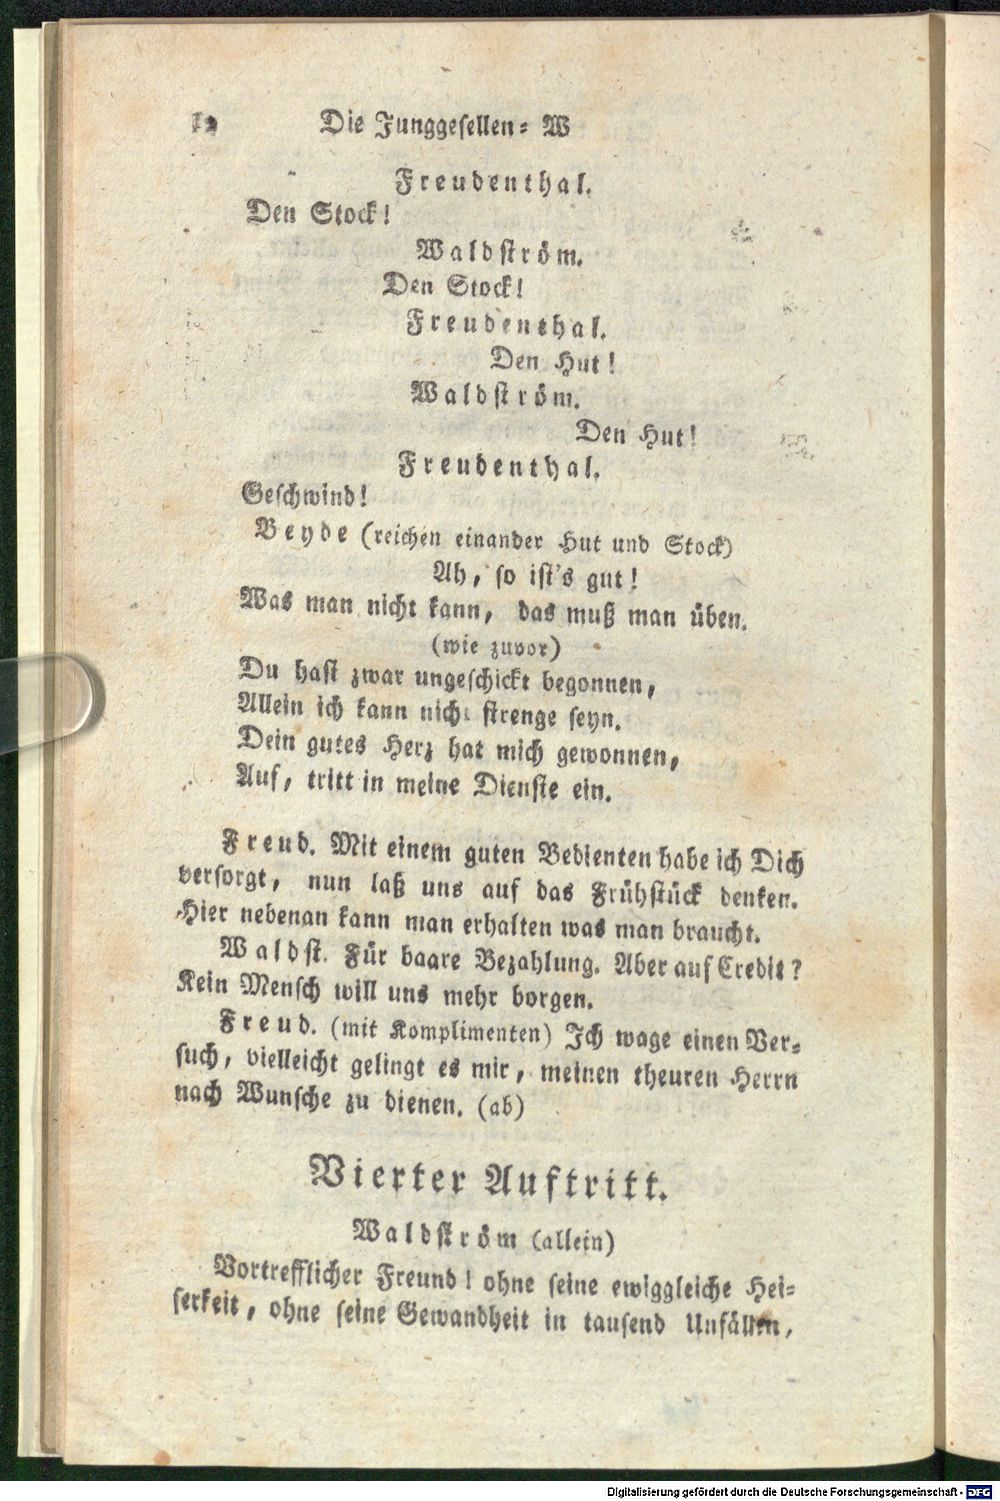 12 Die Junggesellen⸗W
Freudenthal.
Den Stock!
Waldſtröm.
Den Stock!
Freudenthal.
Den Hut!
Waldſtröm.
Den Hut!
Freudenthal.
Geſchwind!
Beyde (reichen einander Hut und Stock)
Ah, ſo iſt's gut!
Was man nicht kann, das muß man üben.
(wie zuvor)
Du haſt zwar ungeſchickt begonnen,
Allein ich kann nicht ſtrenge ſeyn.
Dein gutes Herz hat mich gewonnen,
Auf, tritt in meine Dienſte ein.
Freud. Mit einem guten Bedienten habe ich Dich
verſorgt, nun laß uns auf das Frühſtück denken.
Hier nebenan kann man erhalten was man braucht.
Waldſt. Für baare Bezahlung. Aber auf Credit?
Kein Menſch will uns mehr borgen.
Freud. (mit Komplimenten) Ich wage einen Ver⸗
ſuch, vielleicht gelingt es mir, meinen theuren Herrn
nach Wunſche zu dienen. (ab)
Vierter Auftritt.
Waldſtröm (allein)
Vortrefflicher Freund! ohne ſeine ewiggleiche Hei⸗
ſerkeit, ohne ſeine Gewandheit in tauſend Unfällen,
Digitalisierung gefördert durch die Deutsche Forschungsgemeinschaft - DFG